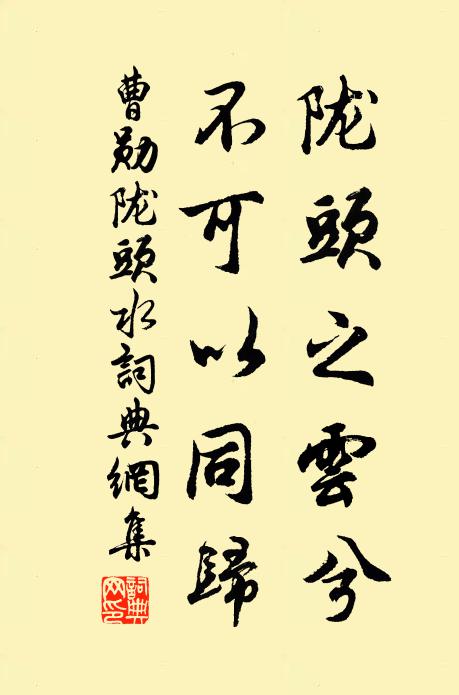 陇頭之雲兮
不可以同歸
曹勛陇頭水詞典網集
詞典網印